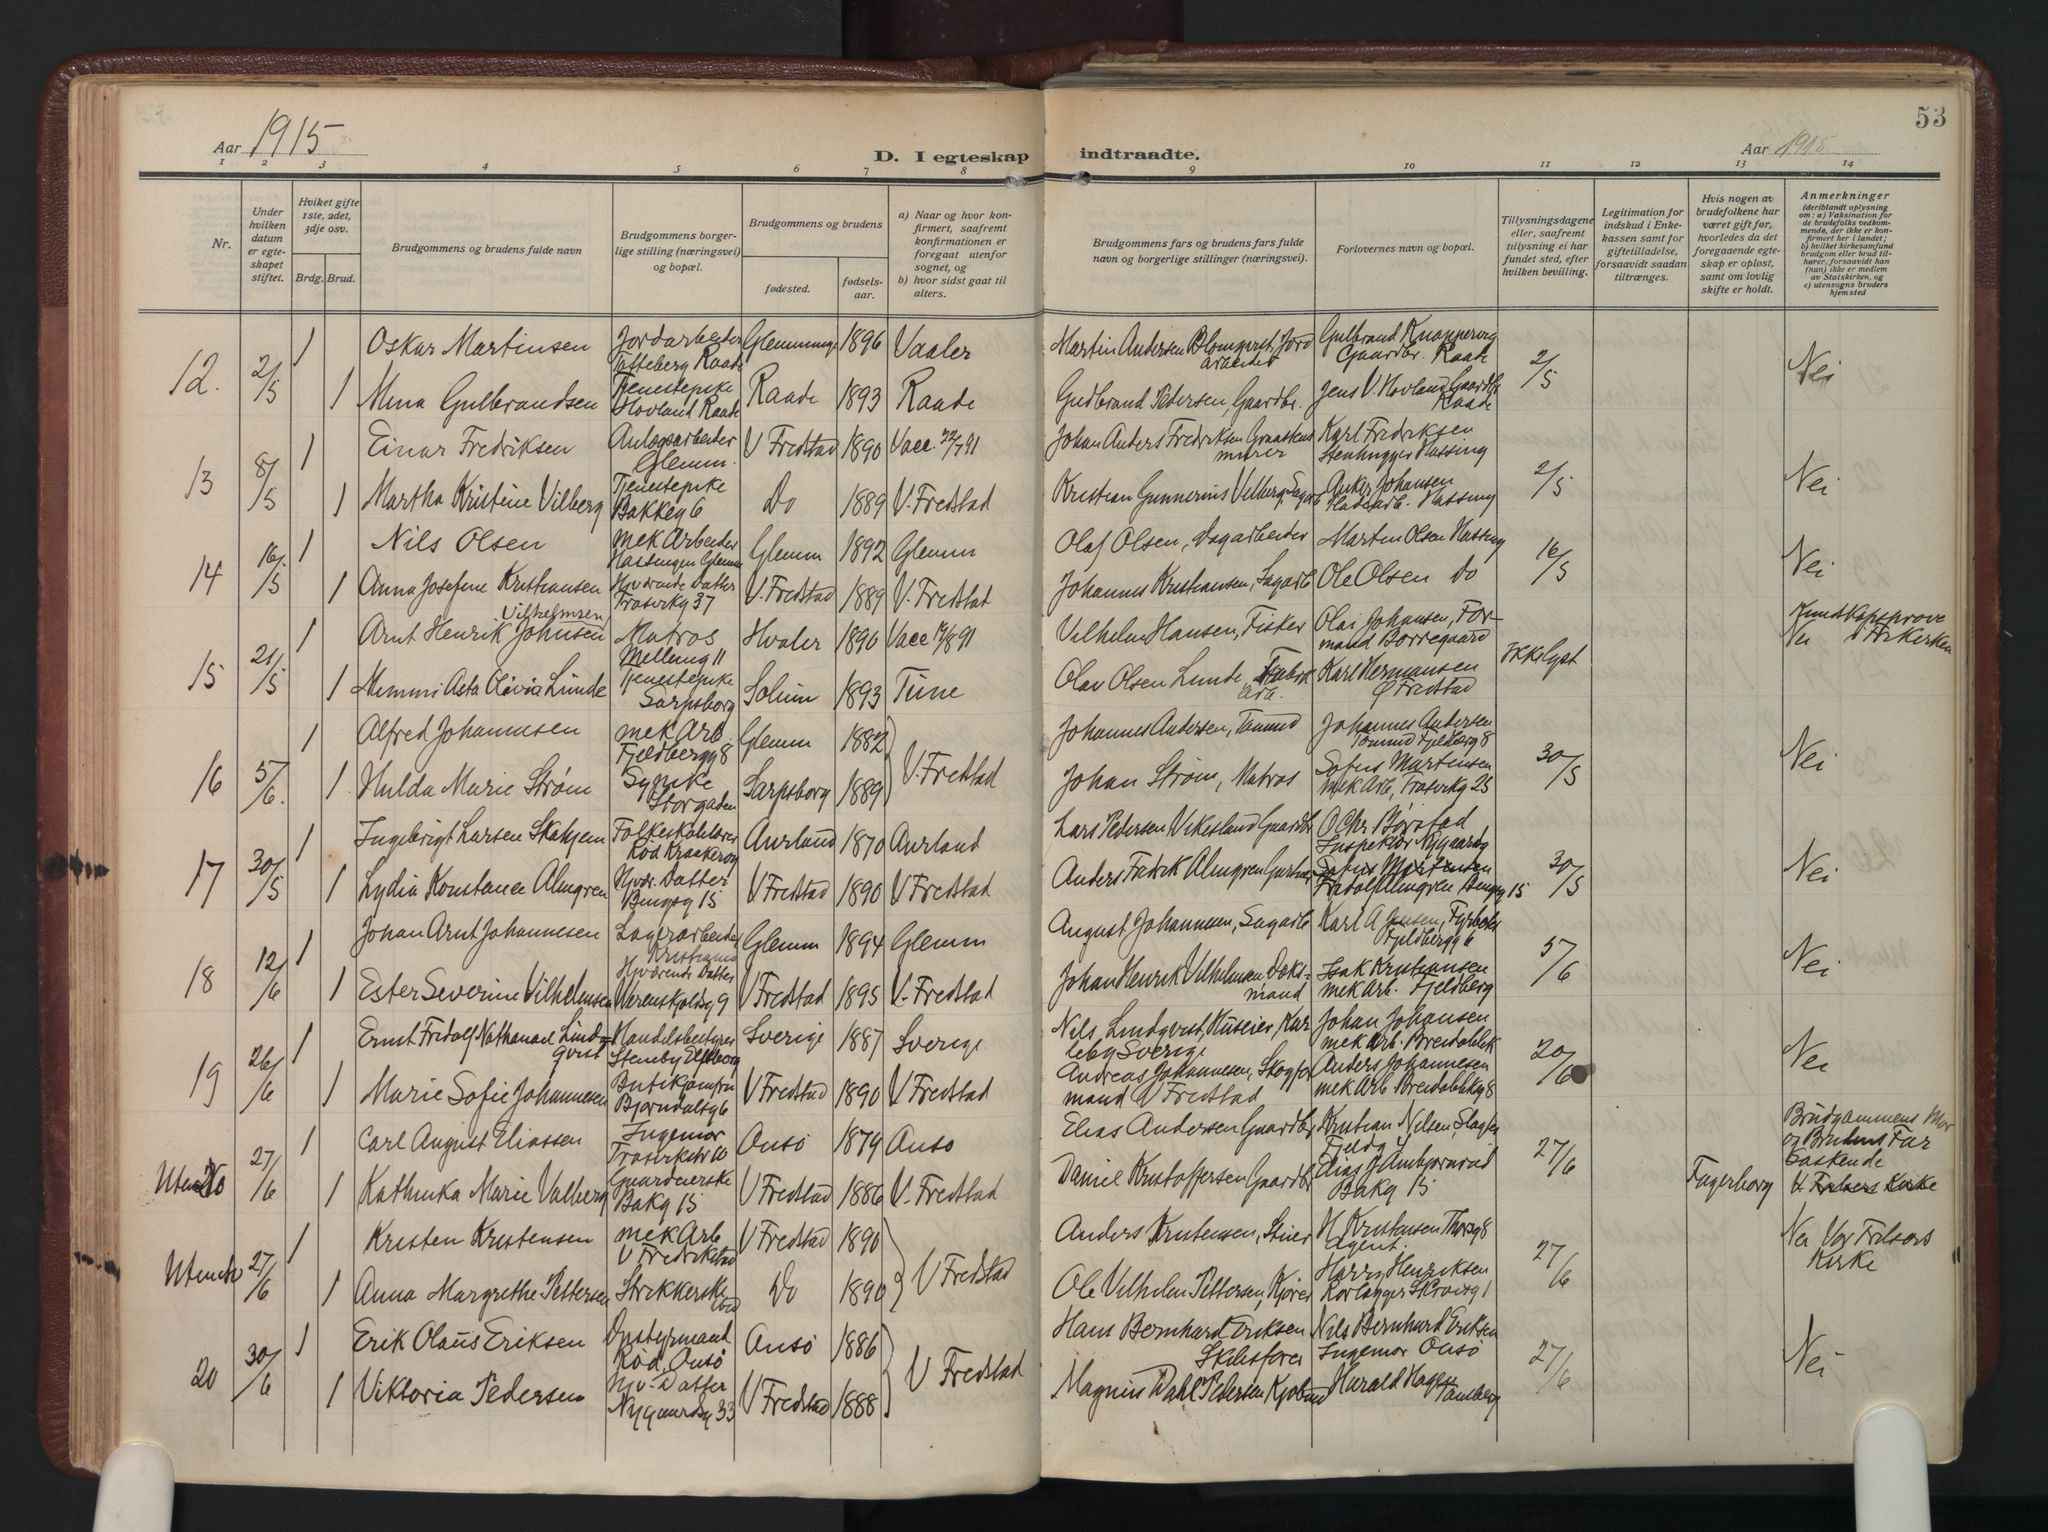 53
Aar 1915
D. I egteskap indtraadte.
Aar 1915
1 2 3 4 5 6 7 8 9 10 11 12 13 14
Nr.
Under hvilken datum er egteskapet stiftet.
Hviket gifte 1ste, 2det, 3dje osv.
Brdg. Brud.
Brudgommens og brudens fulde navn
Brudgommens borgerlige stilling (næringsvei) og bopæl.
Brudgommens og brudens
fødested.
fødselsaar.
a) Naar og hvor konfirmert, saafremt konfirmationen er foregaat utenfor sognet, og
b) hvor sidst gaat til alters.
Brudgommens fars og brudens fars fulde navn og borgerlige stillinger (næringsvei).
Forlovernes navn og bopæl.
Tillysningsdagene eller, saafremt tillysning ei har fundet sted, efter hvilken bevilling.
Legitimation for indskud i Enkekassen samt for giftetilladelse, forsaavidt saadan tiltrænges.
Hvis nogen av brudefolkene har været gift før, hvorledes da det foregaaende egteskap er opløst, samt om lovlig skifte er holdt.
Anmerkninger (deriblandt oplysning om: a) Vaksination for de brudefolks vedkommende, der ikke er konfirmert her i landet; b) hvilket kirkesamfund brudgom eller brud tilhører, forsaavidt han (hun) ikke er medlem av Statskirken, og c) utensogns bruders hjemsted
12. 2/5 1 Oskar Martinsen Jordarbeider Tatteberg Raade 1896 Vaaler Martin Andersen Blomqvist, Jordarbeider Gulbrand Gaardbr. Raade 2/5 Nei
1 Mina Gulbrandsen Tjenestepike Hovland Raade Raade 1893 Raade Gudbrand Pedersen, Gaardbr. Jens V. Hovland Gaardbr. Raade
13 8/5 1 Einar Fredriksen Glemm. V Fredstad 1890 Vacc. Johan Anders Fredriksen murer Karl Fredriksen Stenhugger Hassing 2/5 Nei
1 Martha Kristine Vilberg Tjenestepike Bakkeg 6 Do 1889 V. Fredstad Kristian Gunnerius Vilberg, Sagarb Anker Johansen Hassing
14 16/5 1 Nils Olsen mek Arbeider Hassingen Glemm Glemm 1892 Glemm Olaf Olsen, Dagarbeider Martin Olsen Hassing 16/5 Nei
1 Anna Josefine Kristiansen Hjværende Datter Trosvikg 37 V. Fredstad 1889 V. Fredstad Johannes Kristiansen, Sagarb Ole Olsen Do
15 21/5 1 Arnt Henrik Johnsen Vilhelmsen Matros Melleng 11 Hvaler 1890 Vacc 19/8 91 Vilhelm Hansen, Fisker Olai Johansen, Formand Borregaard Ikke lyst Nei
1 Mimmi Asta Olivia Lunde Tjenestepike Sarpsborg Solum 1893 Tune Olav Olsen Lunde, Fabrik Arb. Karl Hermansen Ø Fredstad
16 5/6. 1 Alfred Johannesen mek Arb. Fjeldbergg 8 Glemm 1882 V. Fredstad Johannes Andersen, Tømmd Johannes Andersen Tømmd Fjeldberg 8 30/5 Nei
1 Hulda Marie Strøm Sypike Storgaden Sarpsborg 1889 Johan Strøm, Matros Sofus Martinsen mek Arb, Trosvikg 25
17 30/5 1 Ingebrigt Larsen Skahjem Folkeskolelærer Rød Kraakerøy Aurland 1870 Aurland Lars Pedersen Vikesland Gaardbr O Chr Børstad Inspektør Nygaardsg 30/5 Nei
1 Lydia Konstance Almgren Hjv. Datter Bingsg 15 V Fredstad 1890 V Fredstad Anders Fredrik Almgren Sofus Martinsen Fridolf Almgren Bingsg 15
18 12/6 1 Johan Arnt Johannesen Lagerarbeider Kristiania Glemm 1894 Glemm August Johannesen, Sagarb Karl A Jensen, Fyrbøter Fjeldbergg 6 5/6 Nei
1 Ester Severine Vilhelmsen Hjværende Datter Werenskjoldsg 9 V Fredstad 1895 V. Fredstad Johan Henrik Vilhelmsen Doksmand Isak Kristiansen mek Arb. Fjeldberg
19 26/6 1 Ernst Fridolf Nathanael Lindqvist Handelsbestyrer Sverige 1887 Sverige Nils Lindqvist, Karleby Sverige Johan Johansen mek Arb. Breidablik 20/6 Nei
1 Marie Sofie Johannesen Butikjomfru Bjørndalsg 6 V Fredstad 1890 V Fredstad Andreas Johannesen, Skogformand V Fredstad Anders Johannesen mek Arb. Breidablikg 8
27/6 1 Carl August Eliassen Ingeniør Onsö 1879 Onsö Elias Andersen Gaardbr Kristian Nilsen, Slagter Fjeldg 4 27/6 Fagerborg Brudgommens Mor og Brudens Far
1 Kathinka Marie Valberg Bakg 15 V Fredstad 1886 V. Fredstad Daniel Kristoffersen Gaardbr Elias J Ambjørnrød Bakg 15
27/6 1 Kristen Kristensen mek Arb V Fredrikstad V Fredstad 1890 V Fredstad Anders Kristensen, H Kristensen Agent. 27/6 Nei Vor Frelsers Kirke
1 Anna Margrethe Pettersen Strikkerske Do 1890 Ole Vilhelm Pettersen, Kjører Harry Henriksen
20 30/6 1 Erik Olaus Eriksen Rød. Onsö Onsö 1886 V Fredstad Hans Bernhard Eriksen Skibsfører Nils Bernhard Eriksen Ingeniør Onsö 27/6 Nei
1 Viktoria Pedersen Hjv. Datter Nygaardsg 33 V Fredstad 1888 Magnus Dahl Pedersen Kjøbmd Harald Hagen